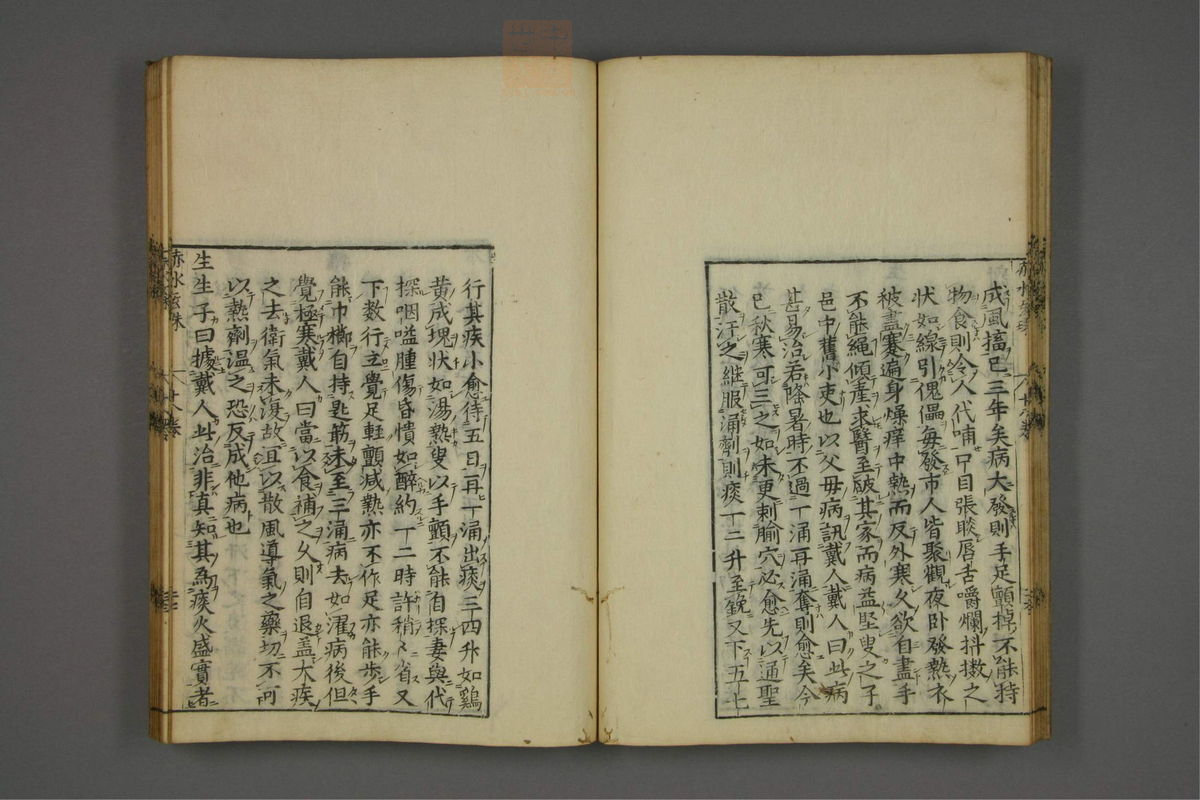 成風搐已三年矣病大發則手足顫掉不能持
物食則令人代哺口目張睒唇舌嚼爛抖擻之
狀如線引傀儡每發市人皆聚觀夜卧發熱衣
被盡蹇遍身燥痒中熱而反外寒久欲自盡手
不能繩傾產求醫至破其家而病益堅叟之子
邑中舊小吏也以父母病訊戴人戴人曰此病
甚易治若隆暑時不過一涌再涌奪則愈矣今
已秋寒可三之如未更刺腧穴必愈先以通聖
散汗之継服涌劑則痰一二升至銳又下五七
行其疾小愈待五日再一涌出痰三四升如鷄
黄成塊狀如湯熱叟以手顫不能自探妻與代
探咽嗌腫傷昏憒如醉約一二時許稍〻省又
下数行立覺足軽顫減熱亦不作足亦能歩手
能巾櫛自持匙筯未至三涌病去如濯病後但
覺極寒戴人曰當以食補之久則自退盖大疾
之去衛氣未復故宜以散風導氣之藥切不可
以熱劑温之恐反成他病也
生生子曰據戴人此治非真知其為痰火盛實者
赤水玄珠